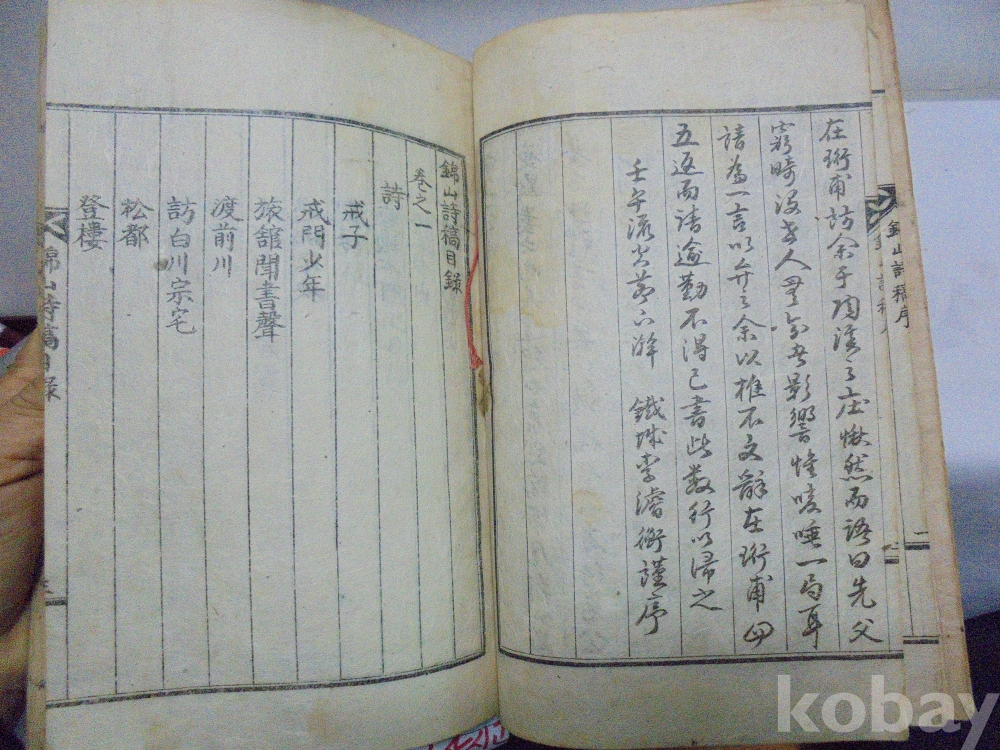 在珩甫訪余于陶溪之庄愀然而語曰先父
窮畸沒世人罕知者影響惟咳唾一局耳
請爲一言以弁之余以椎不文辭在珩甫四
五返而請逾勤不得已書此數行以歸之
壬午流火節下澣 鐵城李濬衡謹序
錦山詩稿序
一
錦山詩稿目錄
卷之一
詩
戒子
戒門少年
旅舘聞書聲
渡前川
訪白川宗宅
松都
登樓
錦山詩稿目錄
kobay